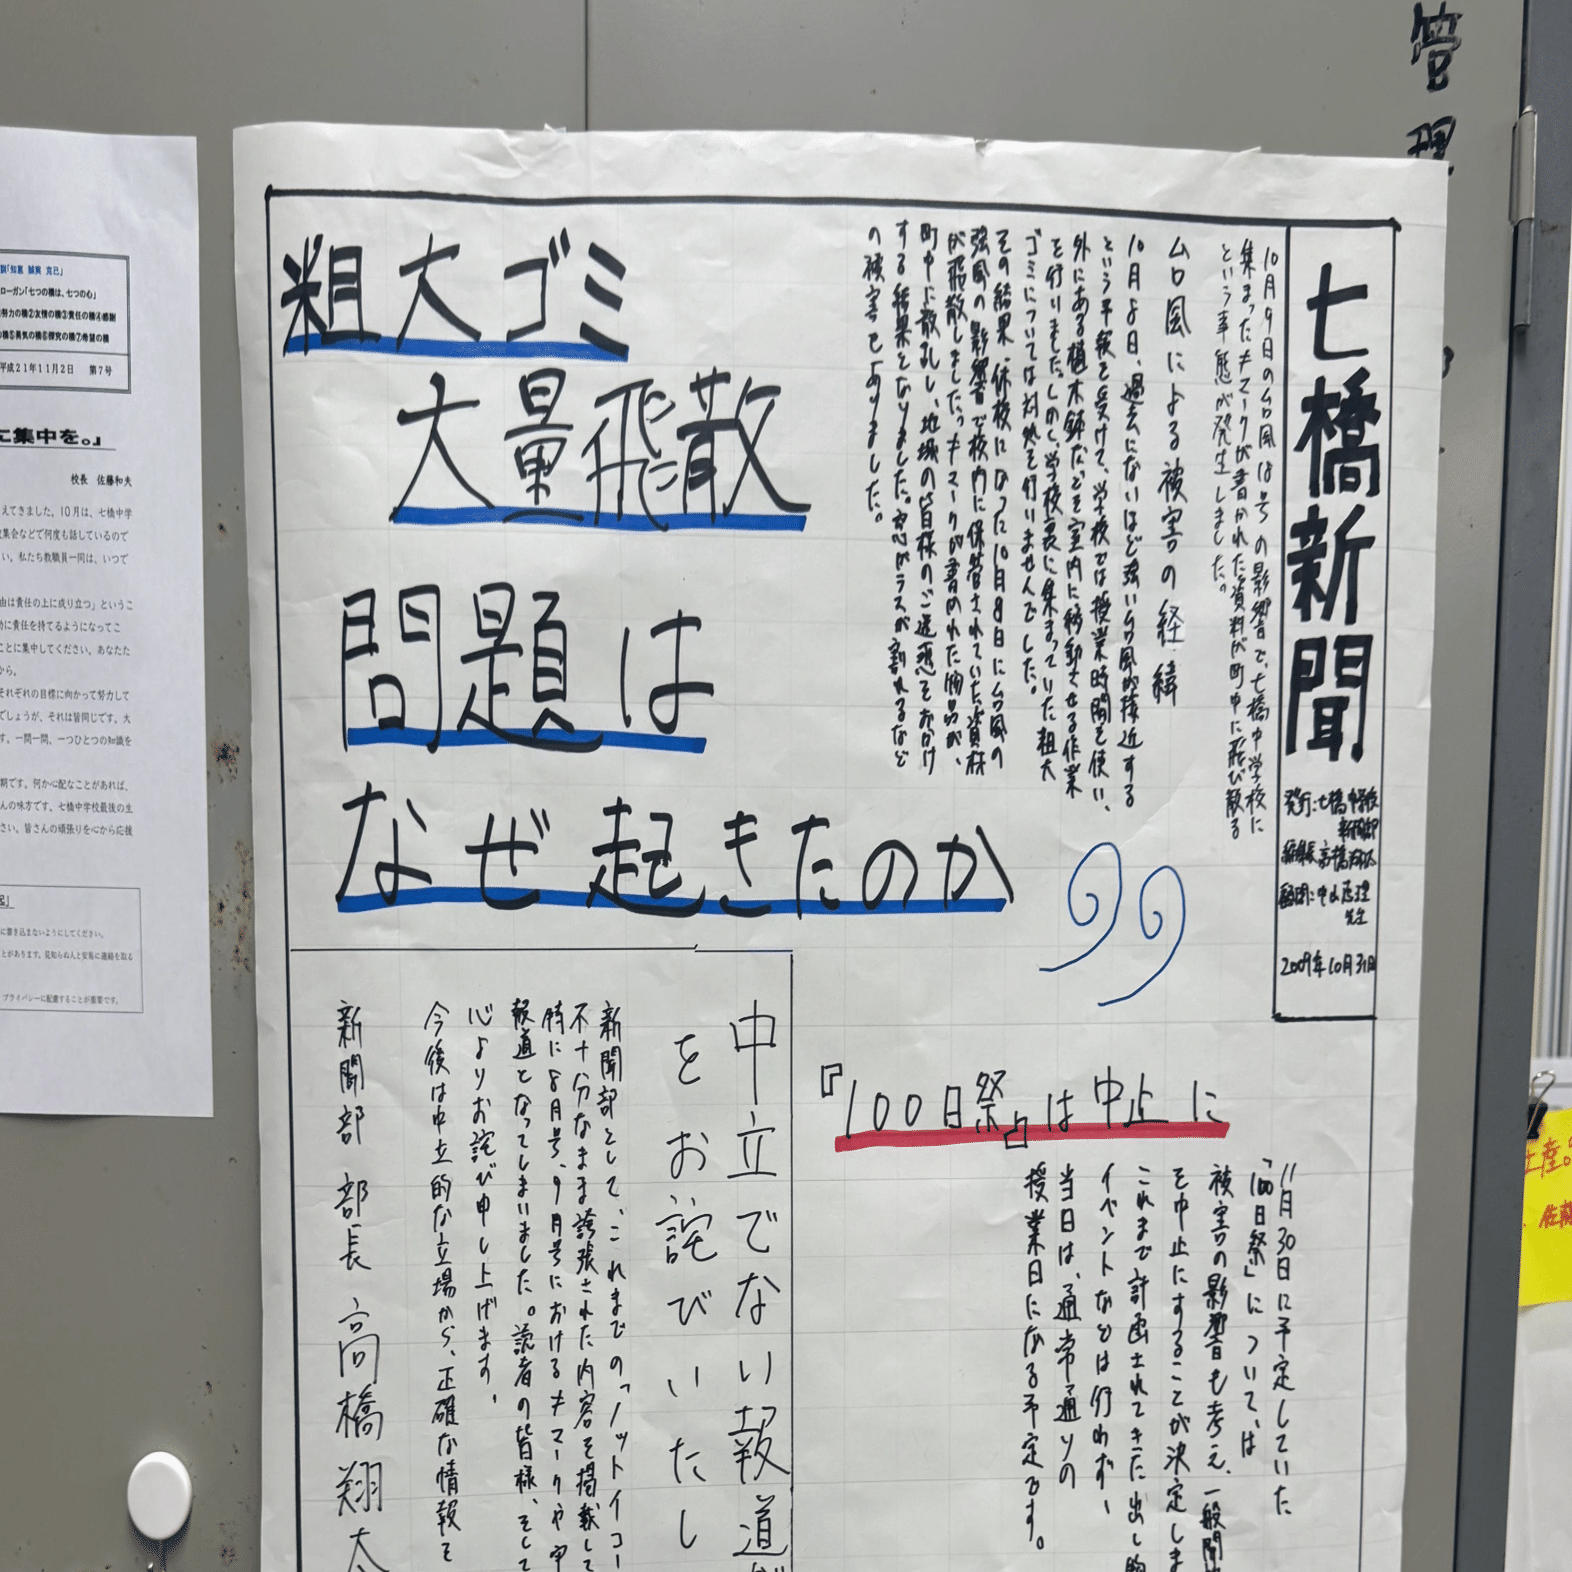 七橋新聞
発行:七橋中学校
新聞部
編集長 高橋翔太
顧問:中山恵理
先生
2009年10月31日
10月9日の台風18号の影響で、七橋中学校に
集まった≠マークが書かれた資料が町中に飛び散る
という事態が発生しました。
台風による被害の経緯
10月8日、過去にないほど強い台風が接近する
という予報を受けて、学校では授業時間を使い、
外にある植木鉢などを室内に移動させる作業
を行いました。しかし、学校裏に集まっていた粗大
ゴミについては対処を行いませんでした。
その結果、休校になった10月8日に台風の
強風の影響で校内に保管されていた資材
が飛散しました。≠マークが書かれた物品が、
町中に散乱し、地域の皆様のご迷惑をおかけ
する結果となりました。窓ガラスが割れるなど
の被害もありました。
粗大ゴミ
大量飛散
問題は
なぜ起きたのか
『100日祭』は中止に
11月30日に予定していた
「100日祭」については
被害の影響も考え、一般開
を中止にすることが決定しま
これまで計画されてきた出し物
イベントなどは行わず、
当日は、通常通りの
授業日になる予定です。
中立でない報道が
をお詫びいたし
新聞部として、これまでの「ノットイコー
不十分なまま誇張された内容を掲載して
特に8月号、9月号における≠マークや中
報道となってしまいました。読者の皆様、そして
心よりお詫び申し上げます。
今後は中立的な立場から、正確な情報を
新聞部 部長 高橋翔太
訓「知恵 誠実 克己」
ローガン「七つの橋は、七つの心」
努力の橋②友情の橋③責任の橋④感謝
の橋⑤勇気の橋⑥探究の橋⑦希望の橋
平成21年11月2日 第7号
に集中を。」
校長 佐藤和夫
えてきました。10月は、七橋中学
集会などで何度も話しているので
い。私たち教職員一同は、いつで
由は責任の上に成り立つ」というこ
に責任を持てるようになってこ
ことに集中してください。あなたた
から。
それぞれの目標に向かって努力して
でしょうが、それは皆同じです。大
す。一問一問、一つひとつの知識を
期です。何か心配なことがあれば、
んの味方です。七橋中学校最後の生
さい。皆さんの頑張りを心から応援
起」
に書き込まないようにしてください。
とがあります。見知らぬ人と安易に連絡を取る
プライバシーに配慮することが重要です。
管理
土産。
佐藤